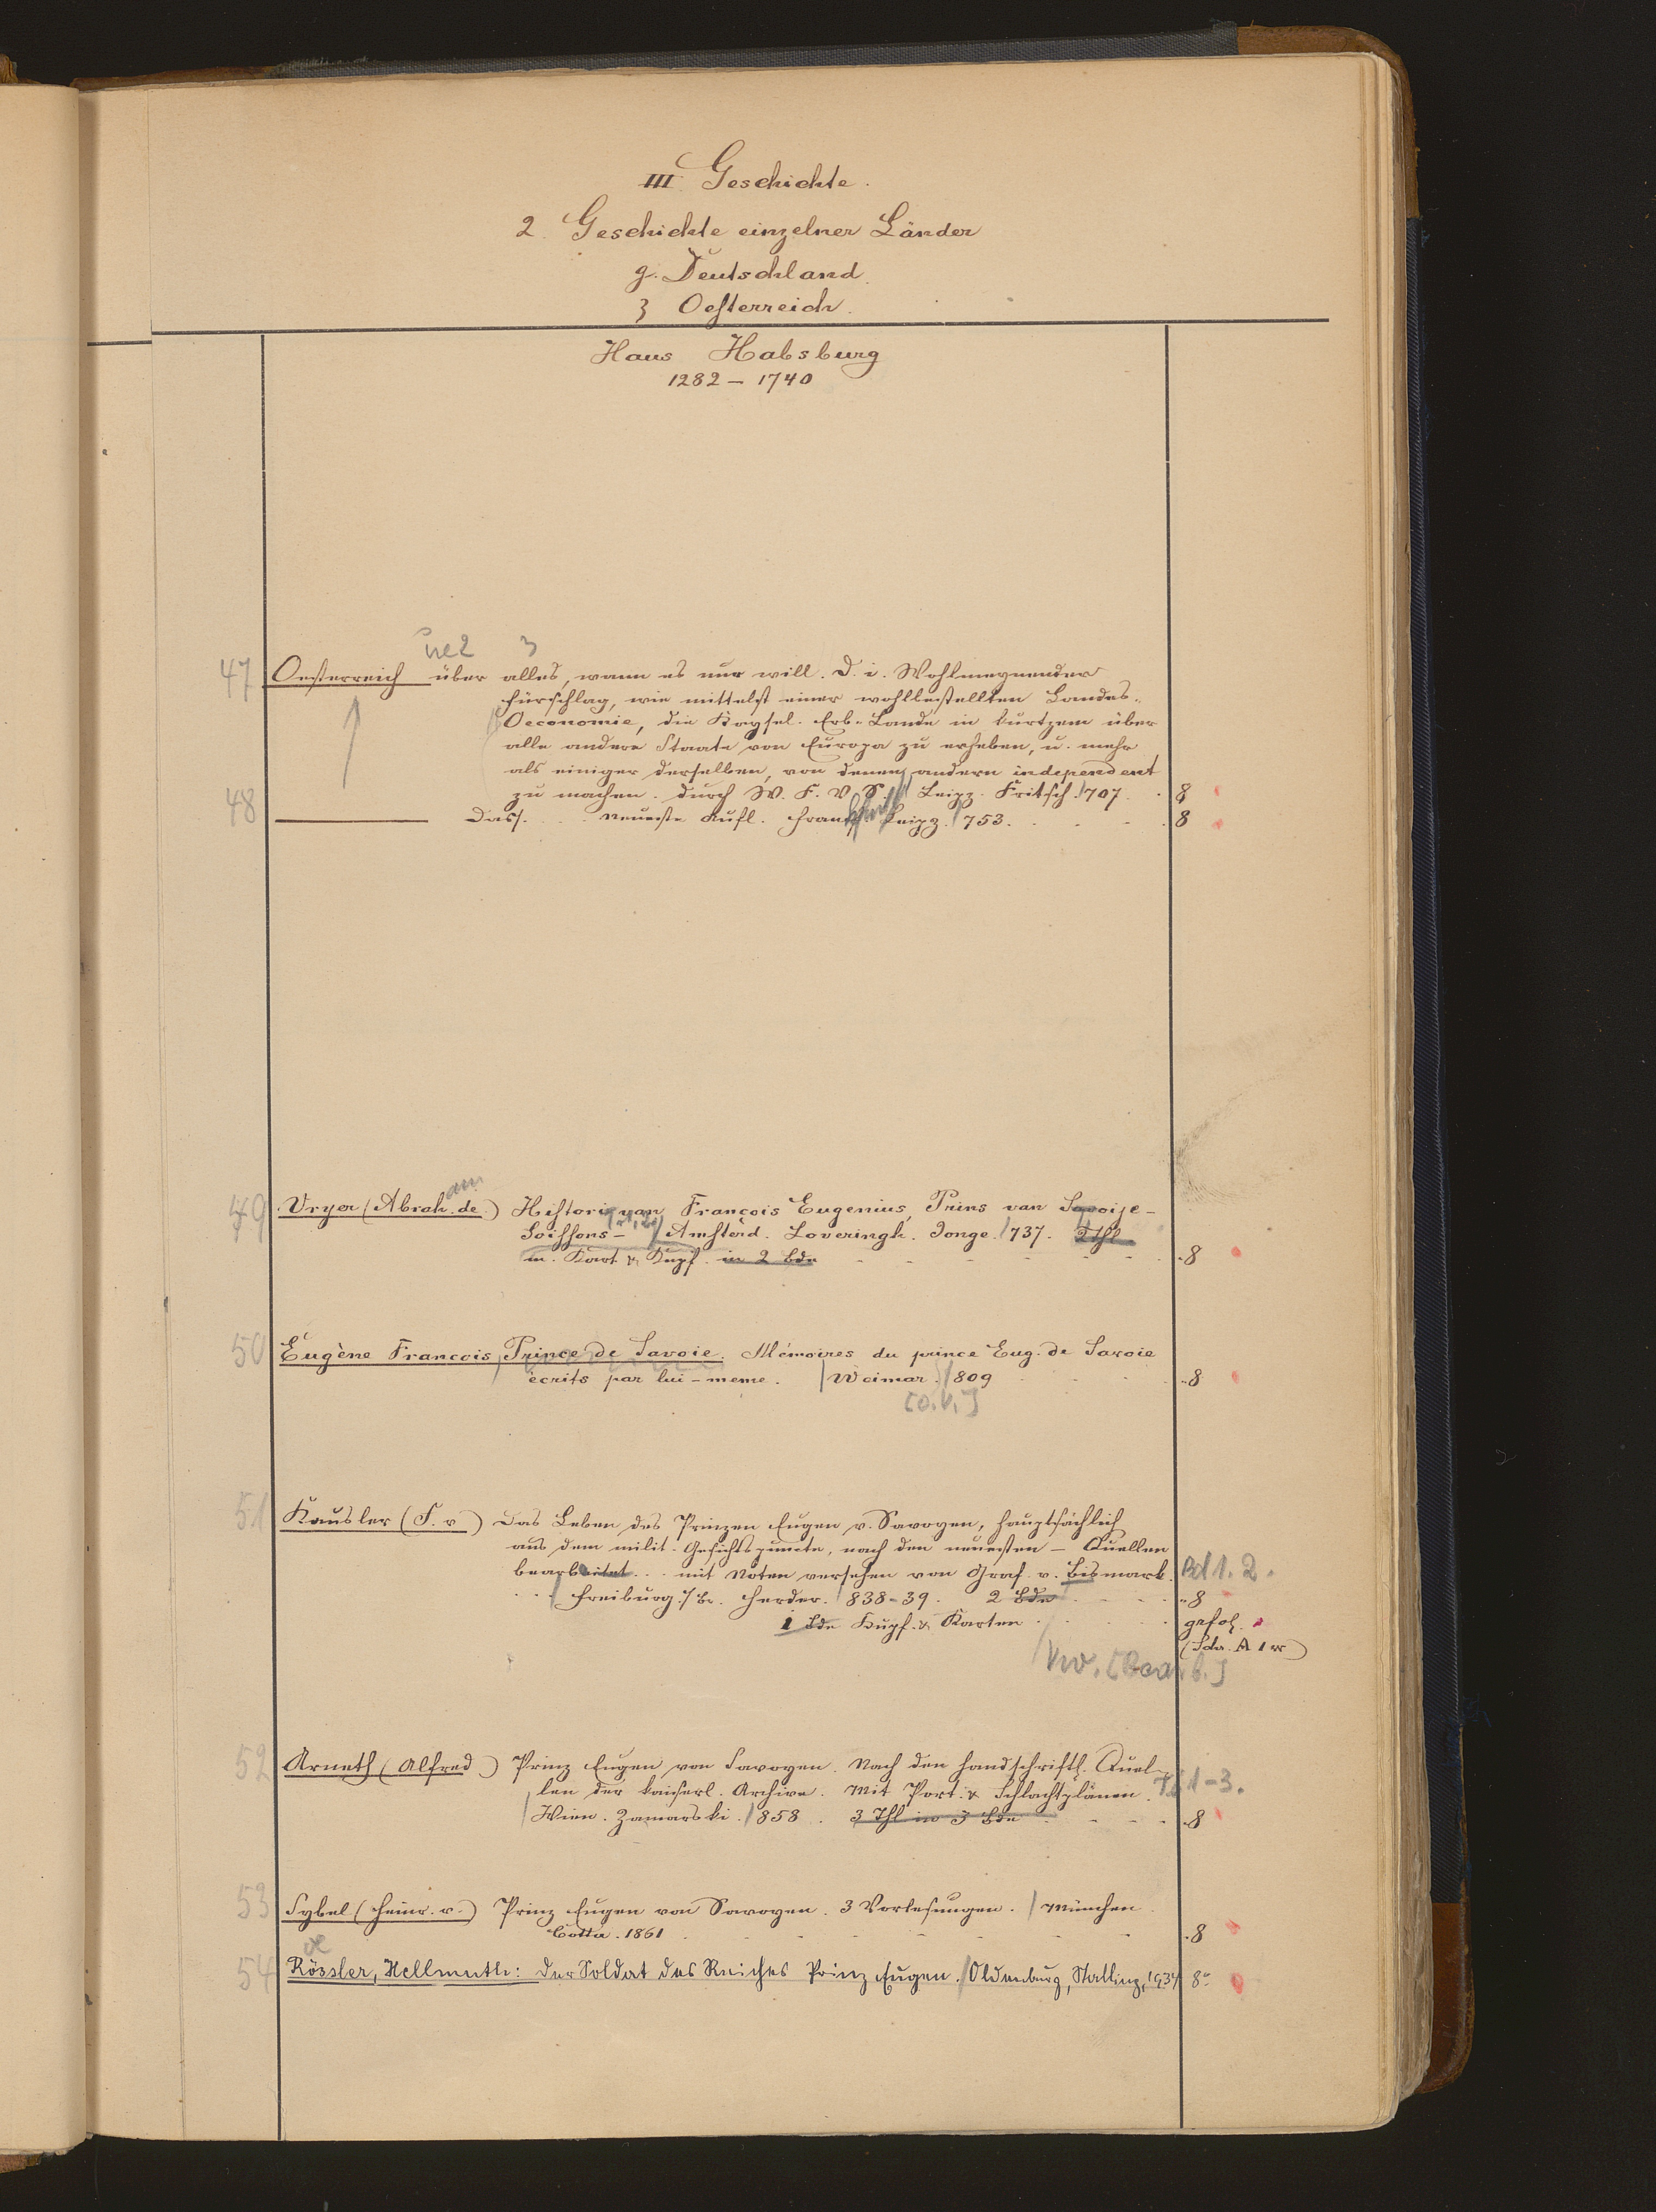 III Geschichte.
2. Geschichte einzelner Länder
g. Deutschland.
3 Oesterreich.
Haus Habsburg
1282 – 1740
ue2 3
47 Oesterreich über alles, wann es nur will. D. i. Wohlmeynender
Fürschlag, wie mittelst einer wohlbestellten Landes-
Oeconomie, die Kaysel. Erb-Lande in kurtzem über
alle andere Staate von Europa zu erheben, u. mehr
als einiger derselben, von denen andern independent
zu machen. Durch W. F. V. S. Leipz. Fritsch. 707. 8
48 ——— Dass. . . . Neueste Aufl. Frankf. Leipz. 753. 8
49 Vryer (Abraham de) Histori van François Eugenius, Prins van Savoije-
Soissons – Amsterd. Loveringh. Jonge. 737. 2 Thl
m. Kart & Kupf. in 2 Bde 8
50 Eugène Francois, Prince de Savoie. Mémoires du prince Eug. de Savoie
écrits par lui-meme. Weimar. 809 8
[o.V.]
51 Kausler (F. v) Das Leben des Prinzen Eugen v. Savoyen, hauptsächlich
aus dem milit. Gesichtspuncte, nach den neuesten – Quellen
bearbeitet . . mit Noten versehen von Graf. v. Bismark. Bd 1. 2.
. . Freiburg i/Br. Herder. 838-39. 2 Bde 8
1 Bde Kupf. & Karten gr fol.
(Schr. A 1 w)
[Bearb.]
52 Arneth (Alfred) Prinz Eugen von Savoyen. Nach den handschriftl. Quel-
len der kaiserl. Archive. Mit Port. & Schlachtplänen. Tl 1-3.
Wien. Zamarski. 858. 3 Thl in 3 Bde 8
53 Sybel (Heinr. v.) Prinz Eugen von Savoyen. 3 Vorlesungen. München.
Cotta. 1861 8
oe
54 Rössler, Hellmuth: Der Soldat des Reiches Prinz Eugen. Oldenburg, Stalling, 1934 8°